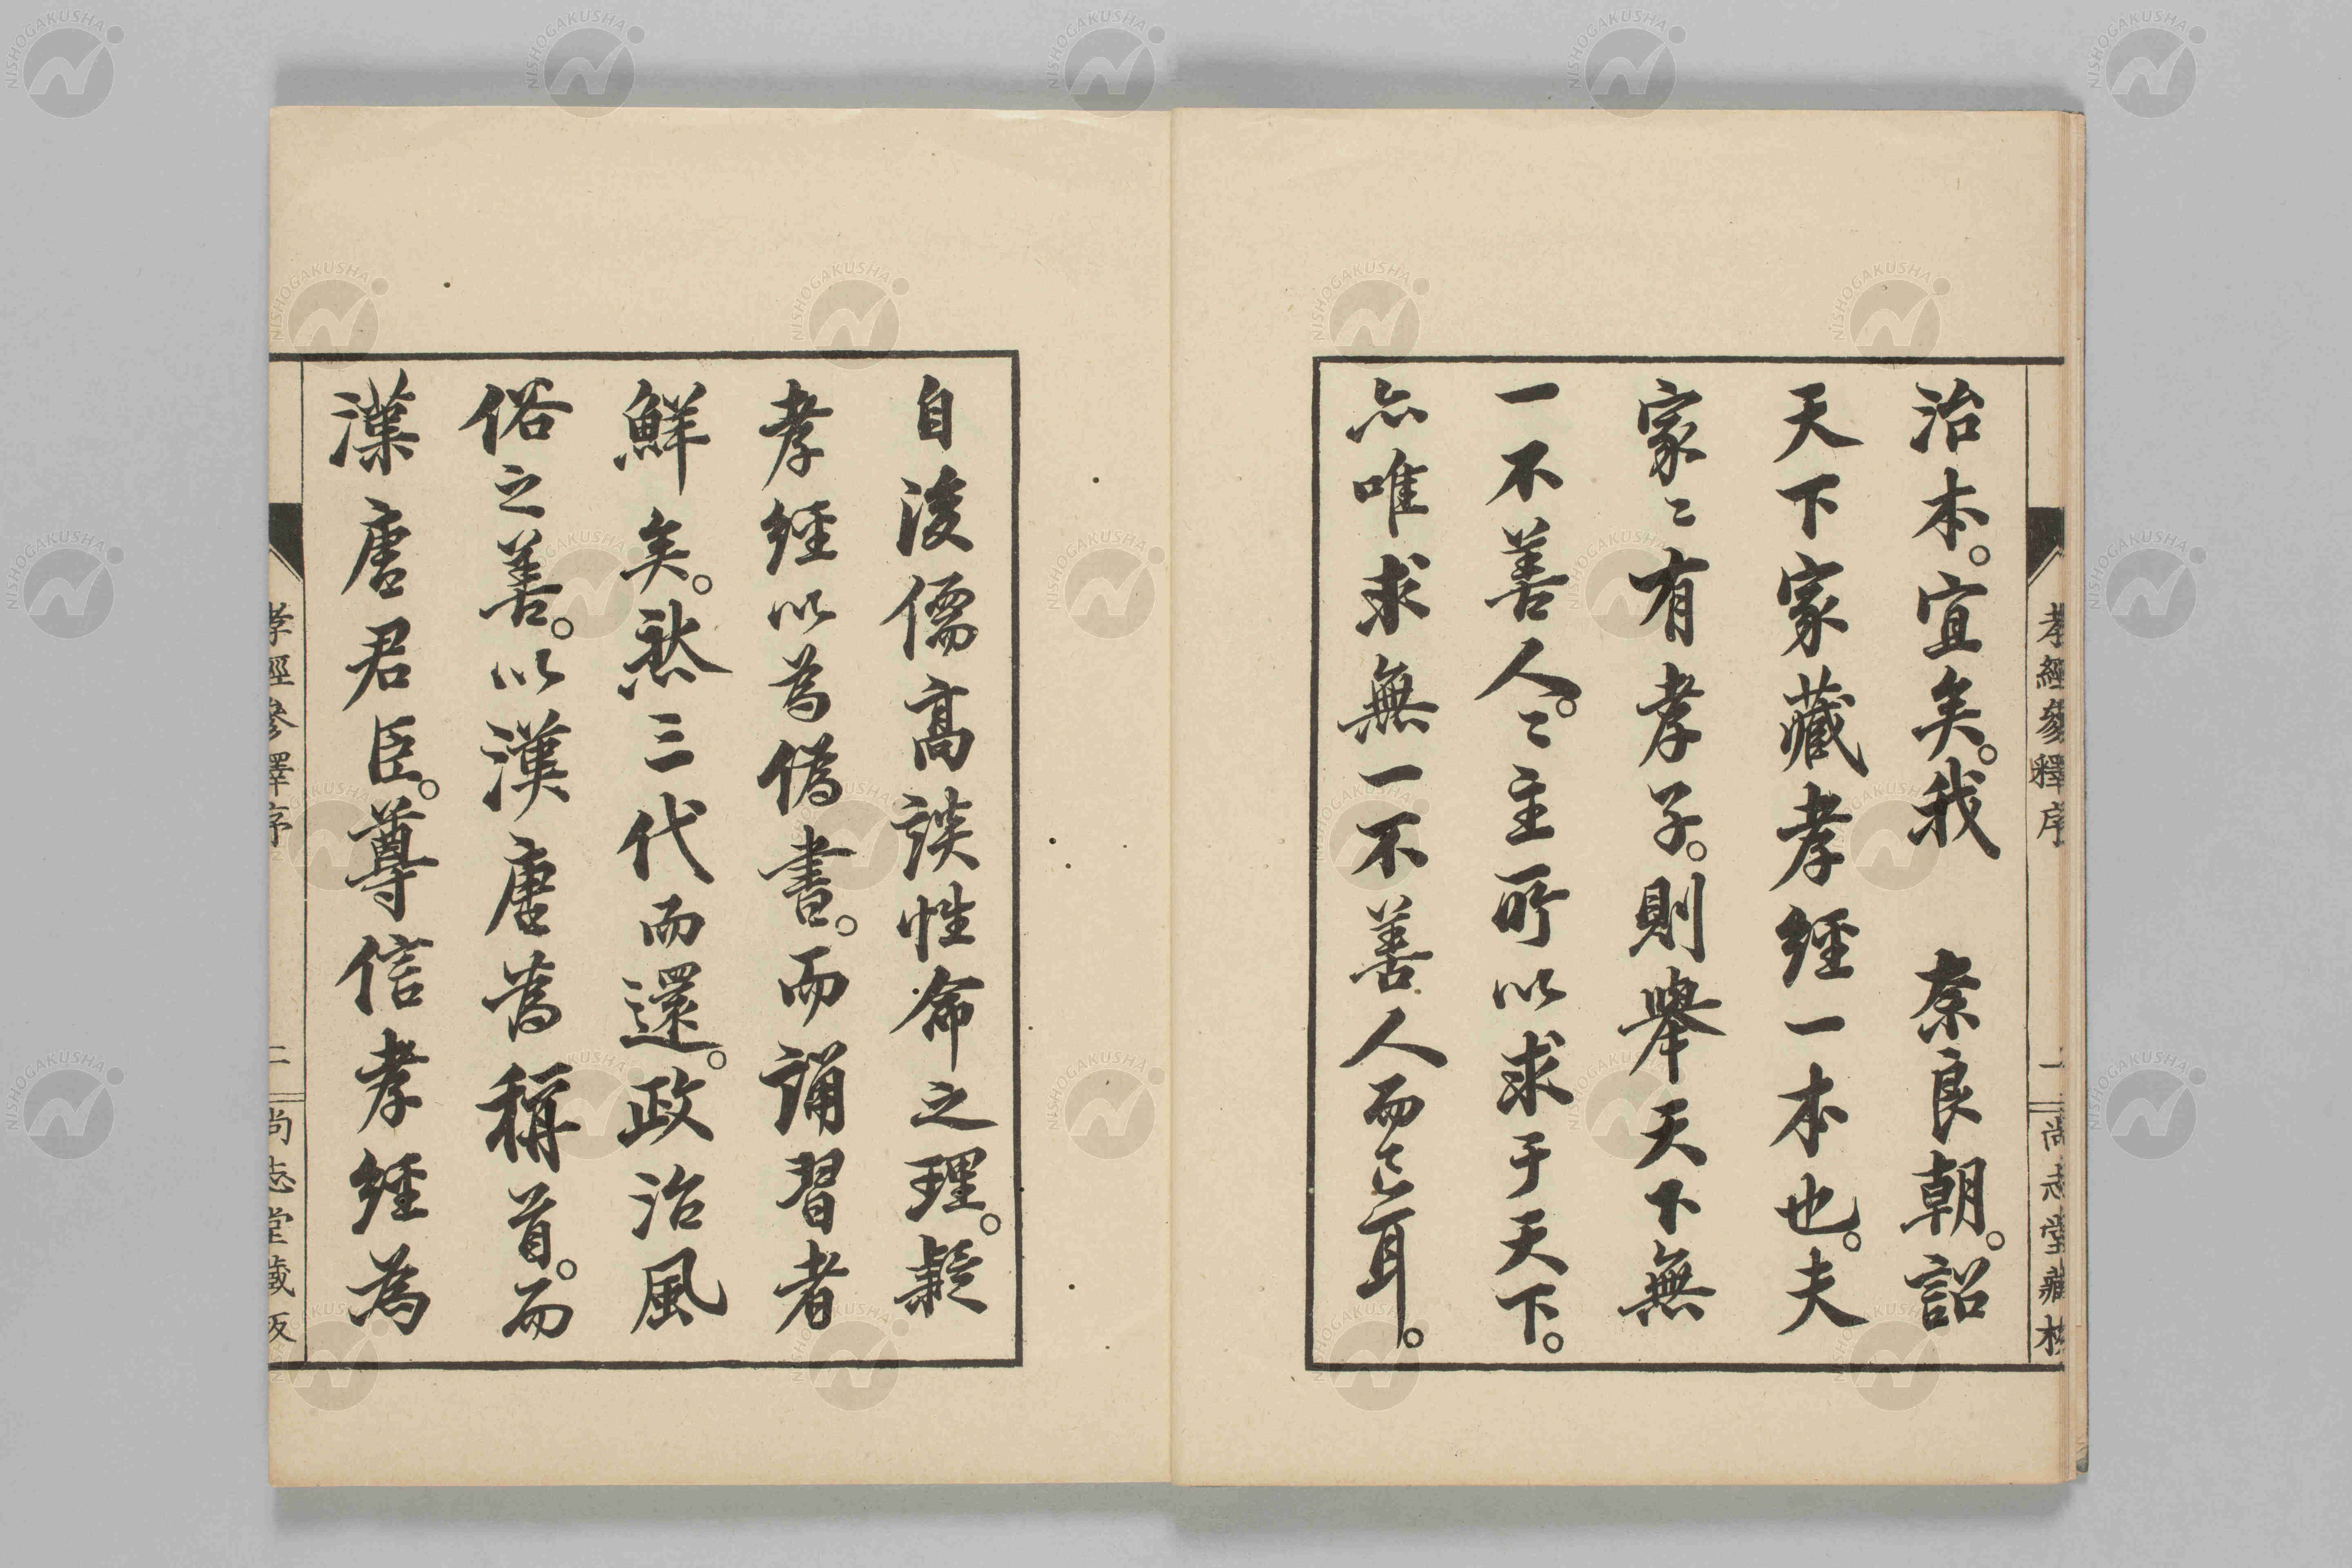 孝經參釋序 一 尚志堂藏板
治本。宜矣。我　奈良朝。詔
天下家藏孝經一本也。夫
家〻有孝子。則擧天下無
一不善人。〻主所以求于天下。
亦唯求無一不善人而已耳。
自後儒高談性命之理。疑
孝經以為偽書。而誦習者
鮮矣。然三代而還。政治風
俗之善。以漢唐為稱首。而
漢唐君臣。尊信孝經為
孝經參釋序 二 尚志堂藏板
NISHOGAKUSHA